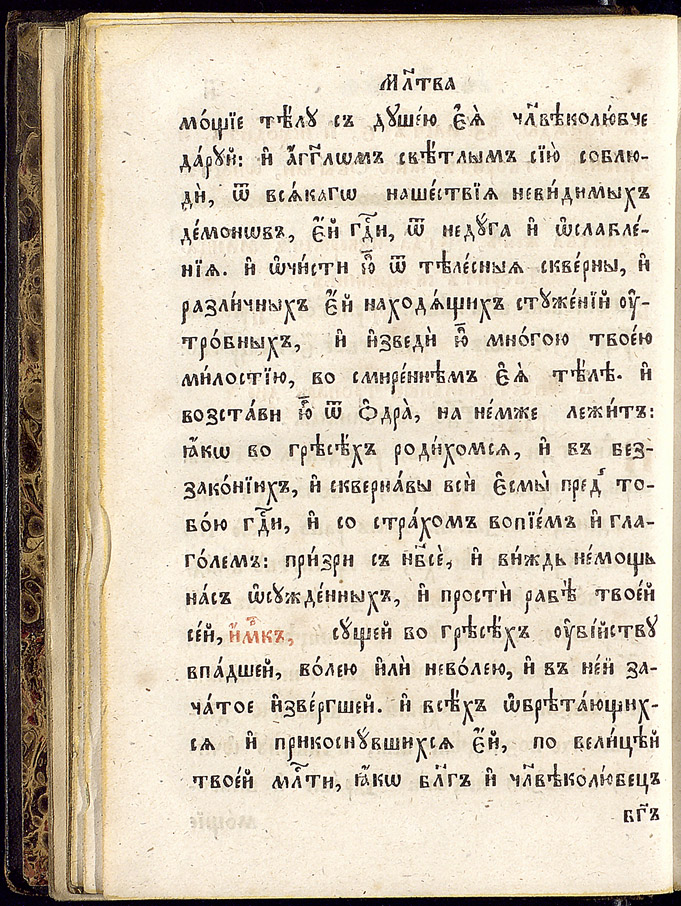 Мл҃тва
мо́щїе тѣ́лу съ душе́ю є҆ѧ̀ чл҃вѣколю́бче
да́руй: и҆ а҆́гг҃лѡмъ свѣ́тлымъ сїю̀ соблю-
дѝ, ѿ всѧ́кагѡ наше́ствїѧ неви́димыхъ
де́моновъ, є҆́й гдⷭ҇и, ѿ неду́га и҆ ѡ҆слабле́-
нїѧ. и҆ ѡ҆чи́сти ю҆̀ ѿ тѣле́сныѧ скве́рны, и҆
разли́чныхъ є҆́й находѧ́щихъ стуже́нїй оу҆-
тро́бныхъ, и҆ и҆зведѝ ю҆̀ мно́гою твое́ю
ми́лостїю, во смире́ннѣмъ є҆ѧ̀ тѣ́лѣ. и҆
возста́ви ю҆̀ ѿ ѻ҆дра̀, на не́мже лежи́тъ:
ꙗ҆́кѡ во грѣсѣ́хъ роди́хомсѧ, и҆ въ без-
зако́нїихъ, и҆ скверна́вы всѝ є҆смы̀ преⷣ то-
бо́ю гдⷭ҇и, и҆ со стра́хомъ вопїе́мъ и҆ гла-
го́лемъ: при́зри съ нб҃сѐ, и҆ ви́ждь не́мощь
на́съ ѡ҆сужде́нныхъ, и҆ простѝ рабѣ̀ твое́й
се́й, и҆́мⷬ҇къ, су́щей во грѣсѣ́хъ оу҆бі́йству
впа́дшей, во́лею и҆лѝ нево́лею, и҆ въ не́й за-
ча́тое и҆зве́ргшей. и҆ всѣ́хъ ѡ҆брѣта́ющих-
сѧ и҆ прикосну́вшихсѧ є҆́й, по вели́цѣй
твое́й млⷭ҇ти, ꙗ҆́кѡ бл҃гъ и҆ чл҃вѣколю́бецъ
бг҃ъ